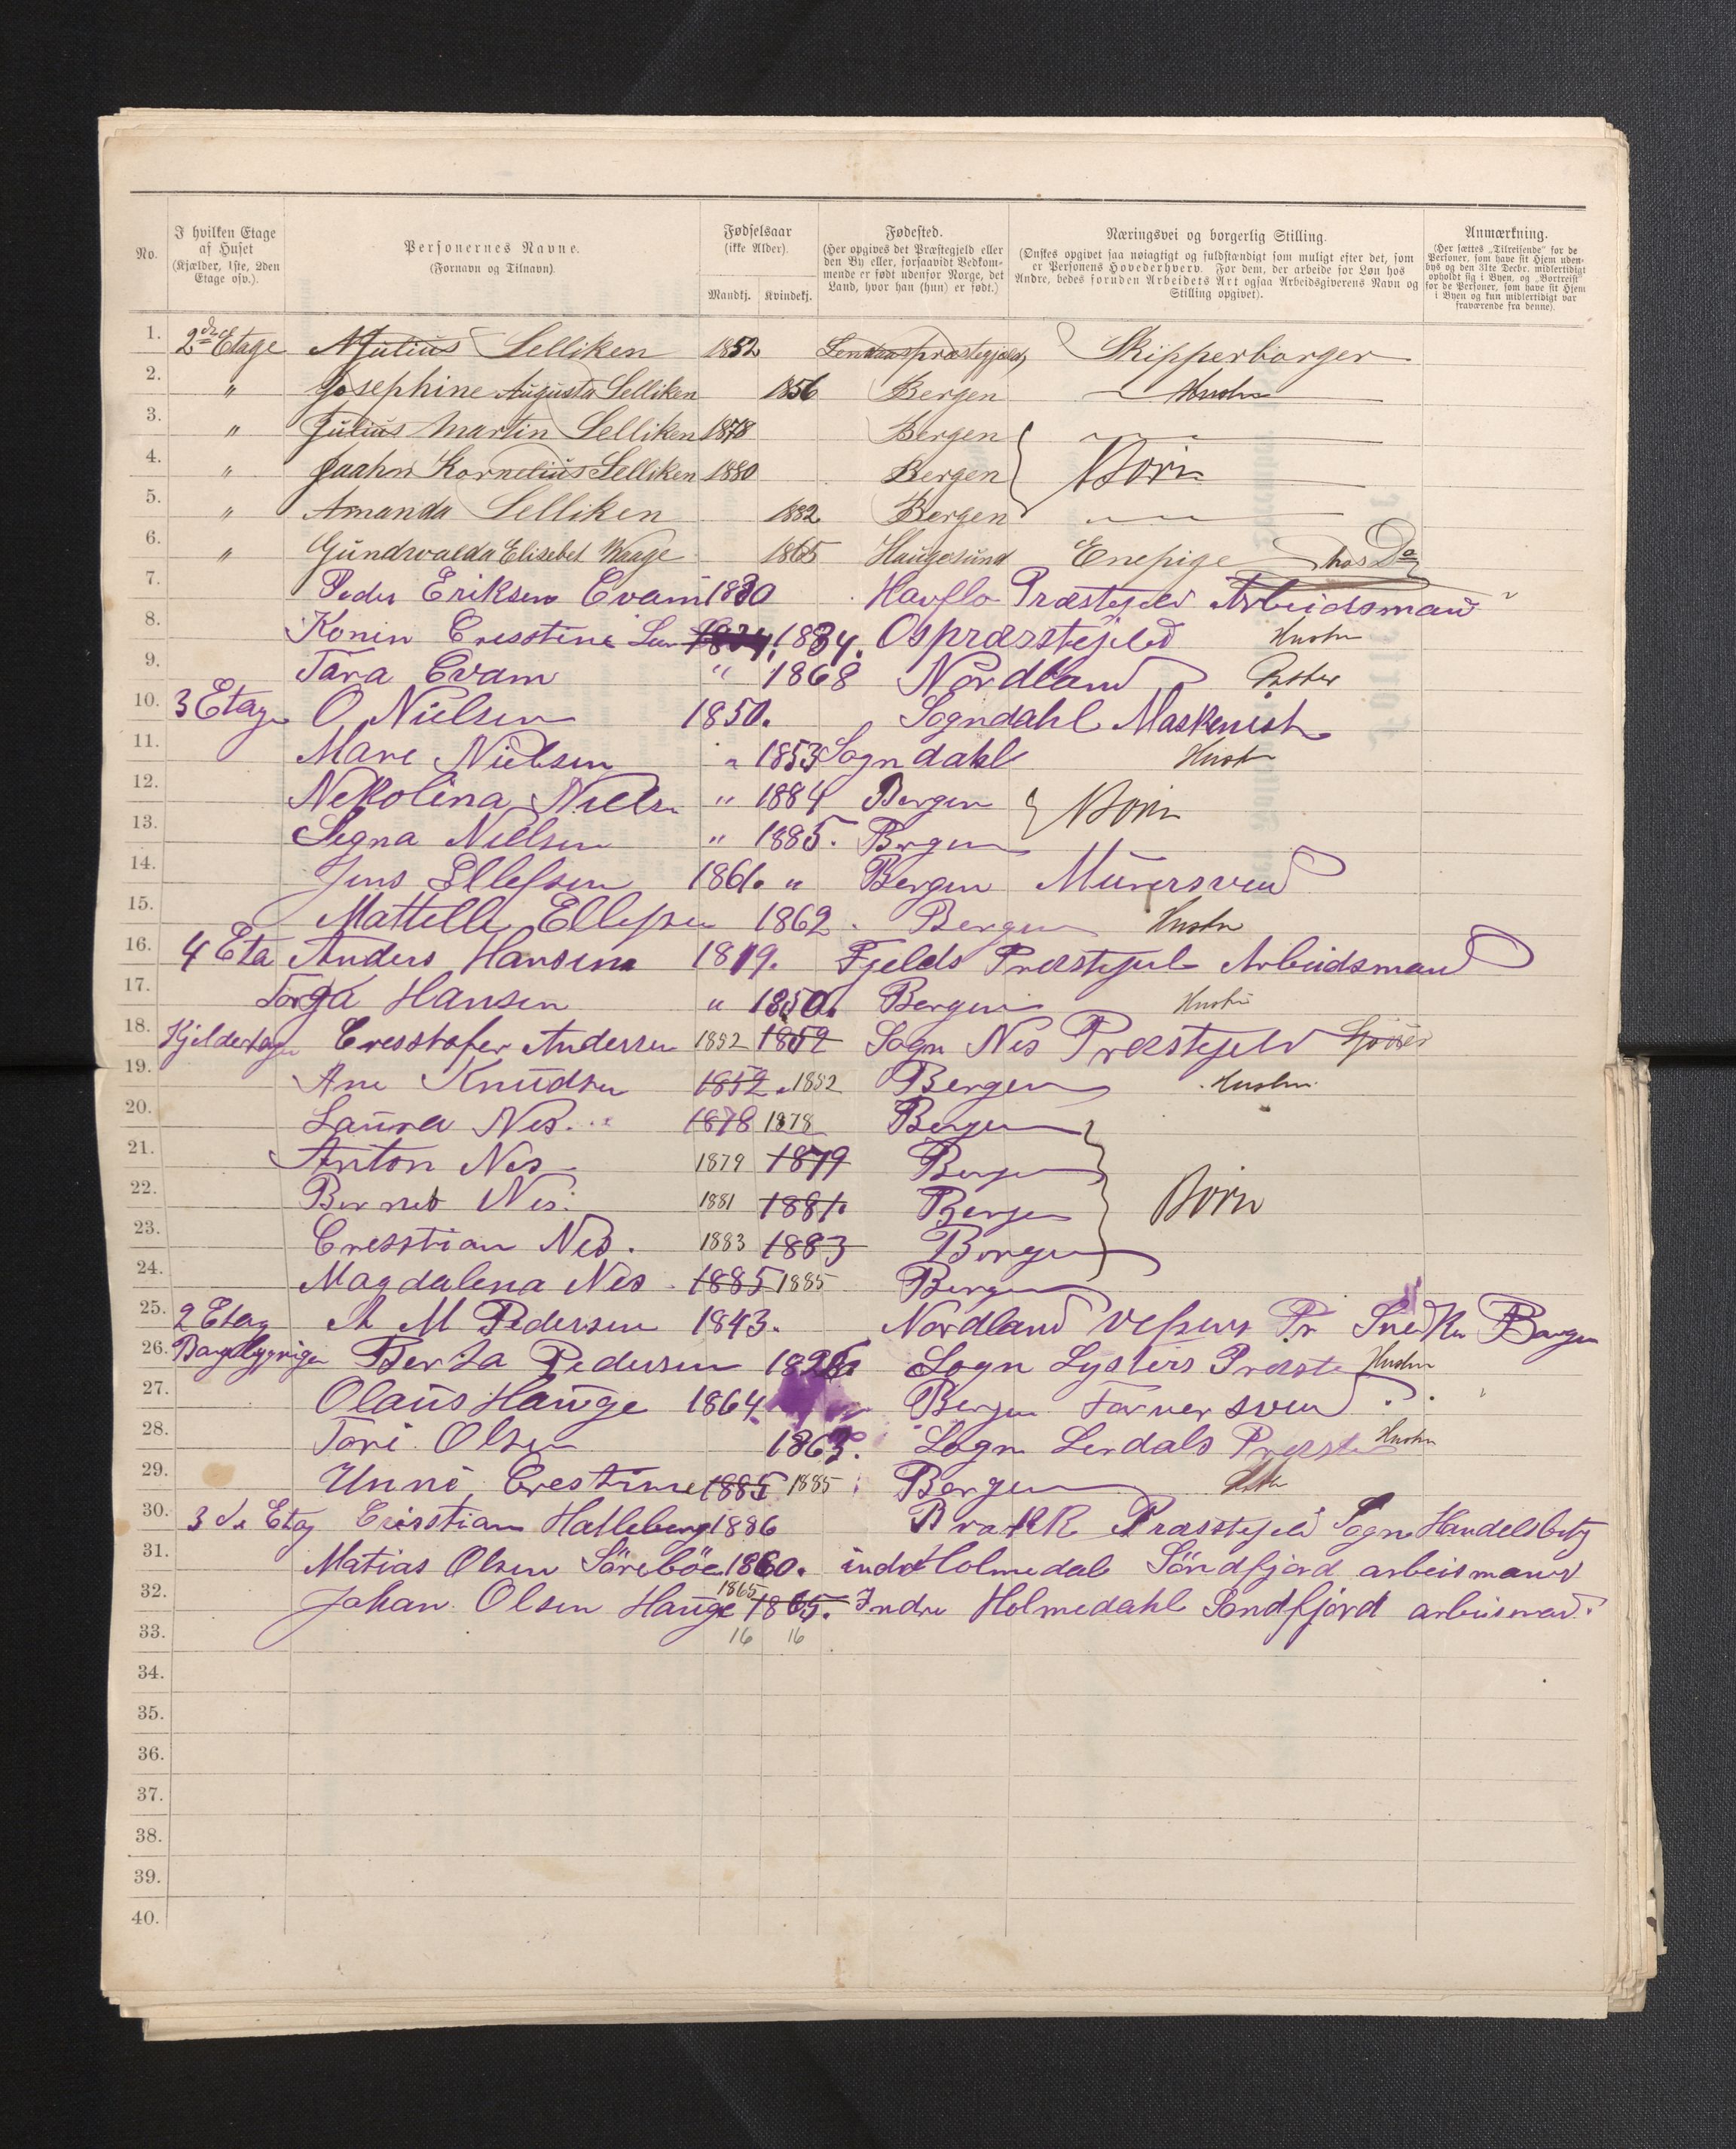 No.
I hvilken Etage af Huset (Kjælder, 1ste, 2den Etage osv.).
Personernes Navne. (Fornavn og Tilnavn).
Fødselsaar (ikke Alder). Mandkj. Kvindekj.
Fødested. (Her opgives det Præstegjeld eller den By eller, forsaavidt Vedkommende er født udenfor Norge, det Land, hvor han (hun) er født.)
Næringsvei og borgerlig Stilling. (Ønskes opgivet saa nøiagtigt og fuldstændigt som muligt efter det, som er Personens Hovederhverv. For dem, der arbeide for Løn hos Andre, bedes foruden Arbeidets Art ogsaa Arbeidsgiverens Navn og Stilling opgivet).
Anmærkning. (Her sættes „Tilreisende" for de Personer, som have sit Hjem udenbys og den 31te Decbr. midlertidigt opholdt sig i Byen, og „Bortreist" for de Personer, som have sit Hjem i Byen og kun midlertidigt var fraværende fra denne).
1. 2de Etage Julius Selliken 1852 Skipperborger
2. " Josephine Augusta Selliken 1856 Bergen Hustru
3. " Julius Martin Selliken 1878 Bergen
4. " Kornelius Selliken 1880 Bergen Börn
5. " Amanda Selliken 1882 Bergen
6. " Gundwalda Elisebet Waage 1865 Haugesund Enepige hos Do
7. Peder Eriksen Evam 1830 Hauflo Præstejeld Arbeidsmand
8. Konin Cresstine 1834. Ospræsstejeld Hustru
9. Tara Evam " 1868 Nordland Datter
10. 3 Etage O Nielsen 1850. Sogndahl Maskenist
11. Mare Nielsen " 1853 Sogndahl Hustr
12. Nekolina Niels " 1884 Bergen Börn
13. Segna Nielsen " 1885. Bergen
14. Jens Ellefsen 1861. " Bergen Murersvend
15. Mattelle Ellefsen 1862. Bergen Hustru
16. 4 Eta Anders Hansen 1819. Fjelds Præstejel Arbeidsmand
17. Torga Hansen " 1850. Bergen Hustru
18. Kjelderetage Cresstofer Andersen 1852 1852 Sogn Nes Præstejeld
19. Ane Knudsen 1852 " 1852 Bergen Hustru
20. Laura Nes. 1878 1878 Bergen
21. Anton Nes 1879 1879 Bergen
22. Bernt Nes. 1881 1881. Bergen Börn
23. Cresstian Nes. 1883 1883 Bergen
24. Magdalena Nes 1885 1885 Bergen
25. 2 Etag A M Pedersen 1843. Nordland Vefsens Pr Snedker Bergen
26. Bagbygnigen Berta Pedersen Sogn Lysters Præste Hustru
27. Olaus Hauge 1864 Bergen Farversvend
28. Tori Olsen 1863. Sogn Lerdals Præste Hustru
29. Unni Crestine 1885 1885 Bergen
30. 3de Etag Cresstian Halleberg 1886 Præsstejeld Sogn Handelsbetj
31. Matias Olsen Söreböe 1860. indre Holmedal Söndfjord arbeismand
32. Johan Olsen Hauge 1865 1865. Indre Holmedahl Sondfjord arbeismand.
33. 16 16
34.
35.
36.
37.
38.
39.
40.